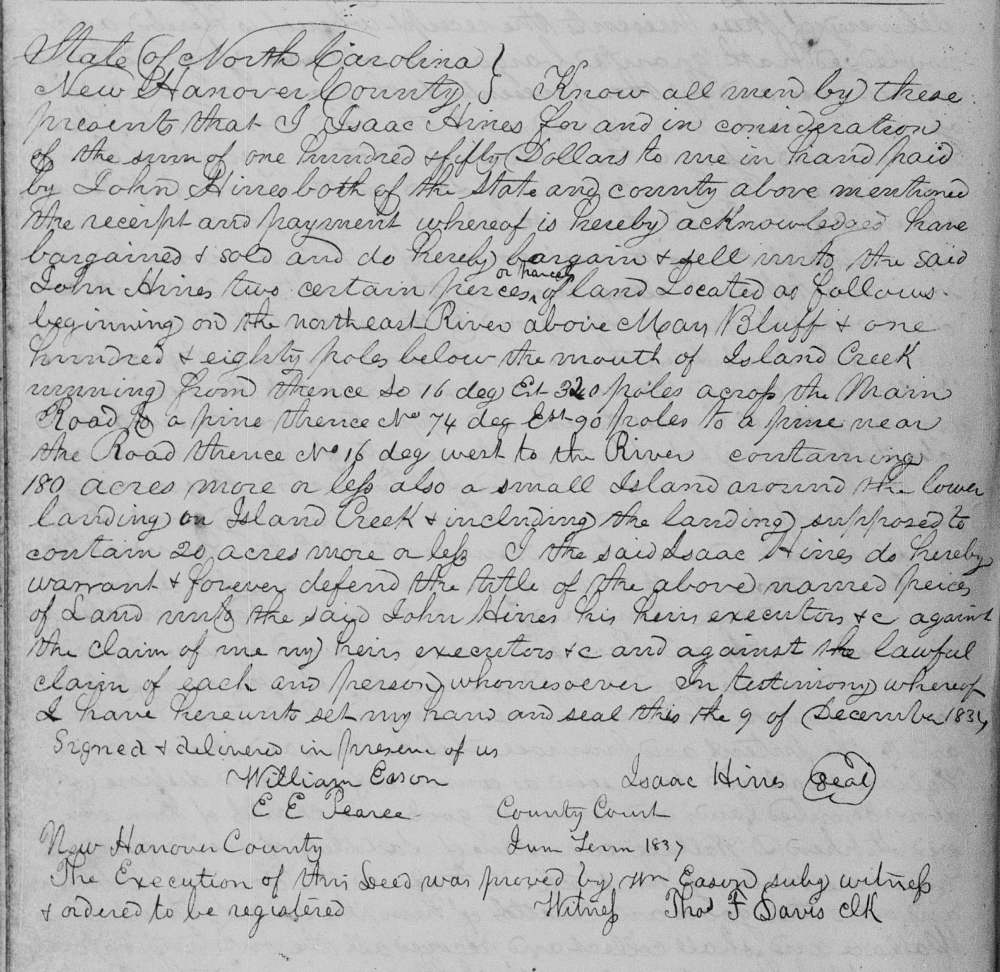 State of North Carolina }
New Hanover County } Know all men by these
presents that I Isaac Hines for and in consideration
of the sum of one hundred & fifty Dollars to me in hand paid
by John Hines both of the State and county above mentioned
the receipt and payment whereof is hereby acknowledged have
bargained & sold and do hereby bargain & sell unto the said
John Hines two certain peices or trances of land Located as follows
beginning on the northeast River above May Bluff & one
hundred & eighty poles below the mouth of Island Creek
running from thence So 16 deg Est 320 poles across the Main
Road to a pine thence No 74 deg Est 90 poles to a pine near
the Road thence No 16 deg west to the River containing
180 acres more or less also a small Island around the lower
landing on Island Creek & including the landing supposed to
contain 20 acres more or less I the said Isaac Hines do hereby
warrant & forever defend the title of the above named peices
of Land unto the said John Hines his heirs executors & c against
the claim of me my heirs executors & c and against the lawful
claim of each and person whomesoever In testimony whereof
I have hereunto set my hand and seal this the 9 of December
Signed & delivered in presence of us
William Eason Isaac Hines (Seal)
E E Pearce County Court
New Hanover County June Term 1837
The Execution of this Deed was proved by Wm Eason subg witness
& ordered to be registered Witness Thos F Davis clk